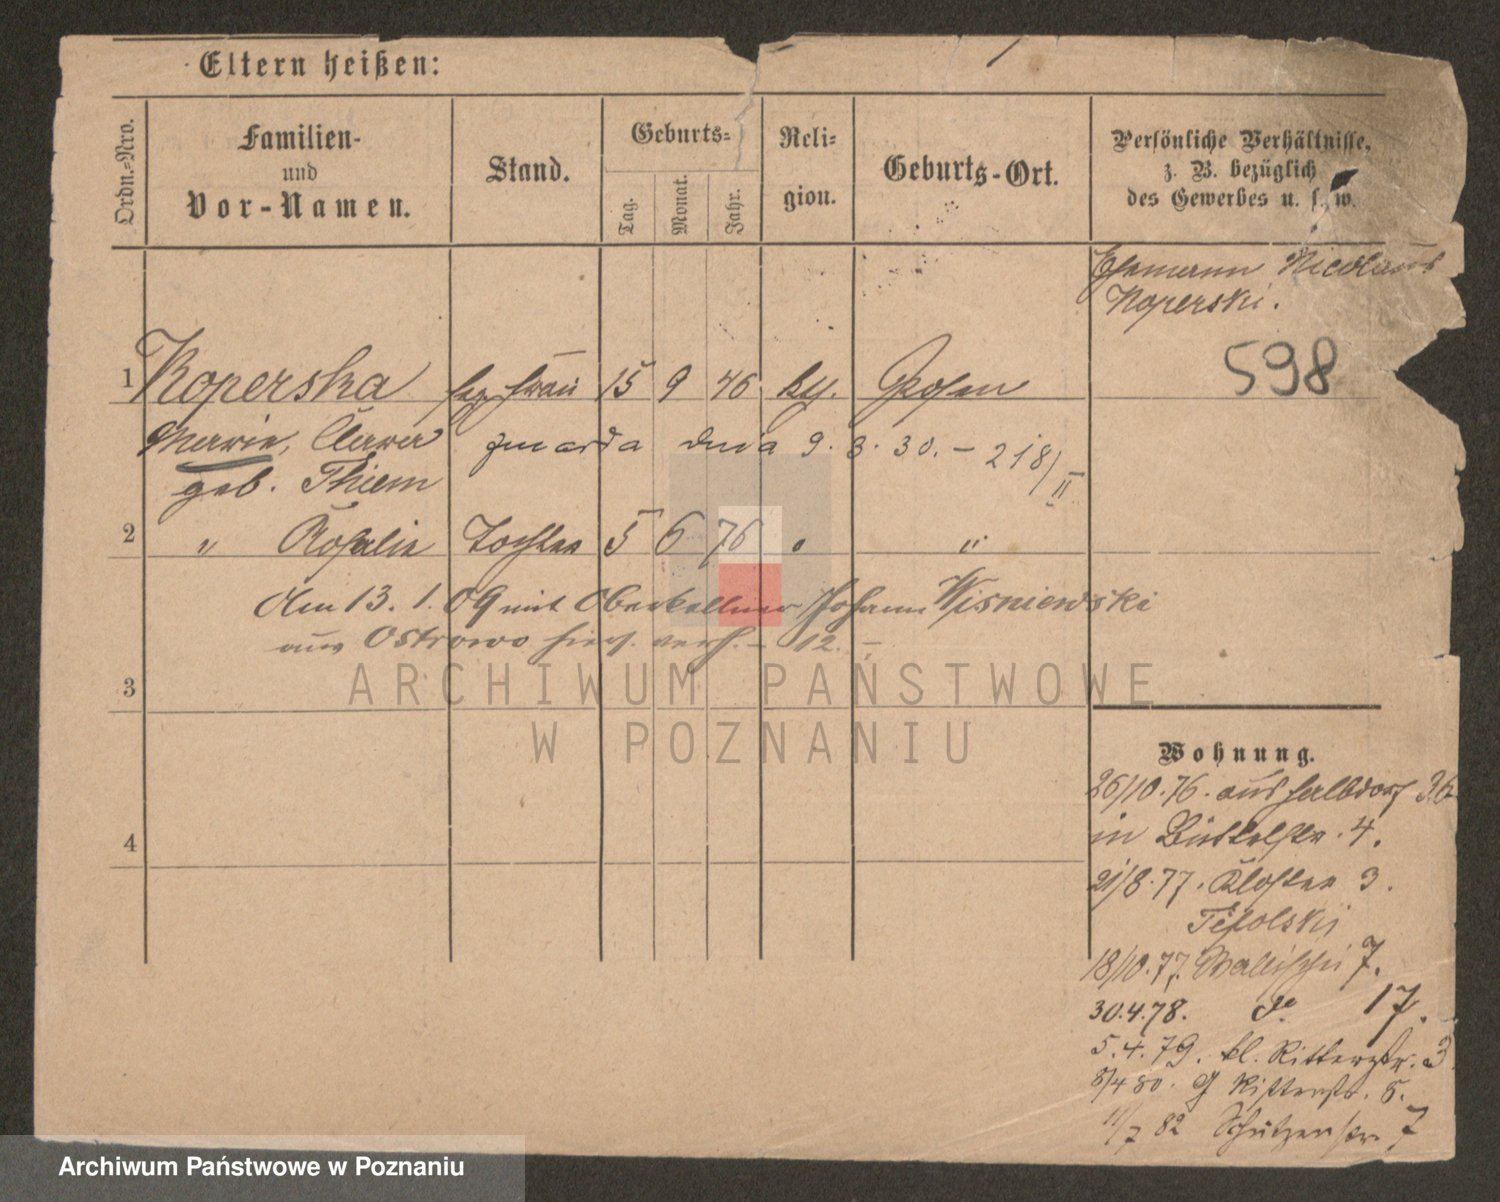 Eltern heißen:
Ordn.=Nro.
Familien-
und
Vor-Namen.
Stand.
Geburts=
Tag.
Monat.
Jahr.
Reli=
gion.
Geburts-Ort.
Persönliche Verhältnisse,
z. B. bezüglich
des Gewerbes u. s. w.
Ehemann Nicolaus
Koperski.
598
1 Koperska sep. Frau 15 9 46 kth. Posen
Marie, Clara zmarła dnia 9. 8. 30. - 218/II
geb. Thiem
2 " Rosalie Tochter 5 6 76 " "
Am 13. 1. 09 mit Oberkellner Johann Wisniewski
aus Ostrowo hier. verh. - 12. -
3
4
Wohnung.
26/10.76. aus Halbdorf 36
in Büttelstr. 4.
21/8.77. Kloster 3.
18/10.77. Wallischei 7.
30.4.78. do 17.
5.4.79. kl. Ritterstr. 3
8/4 80. G Ritterstr. 5.
11/7 82 Schützenstr. 7
ARCHIWUM PAŃSTWOWE
W POZNANIU
Archiwum Państwowe w Poznaniu